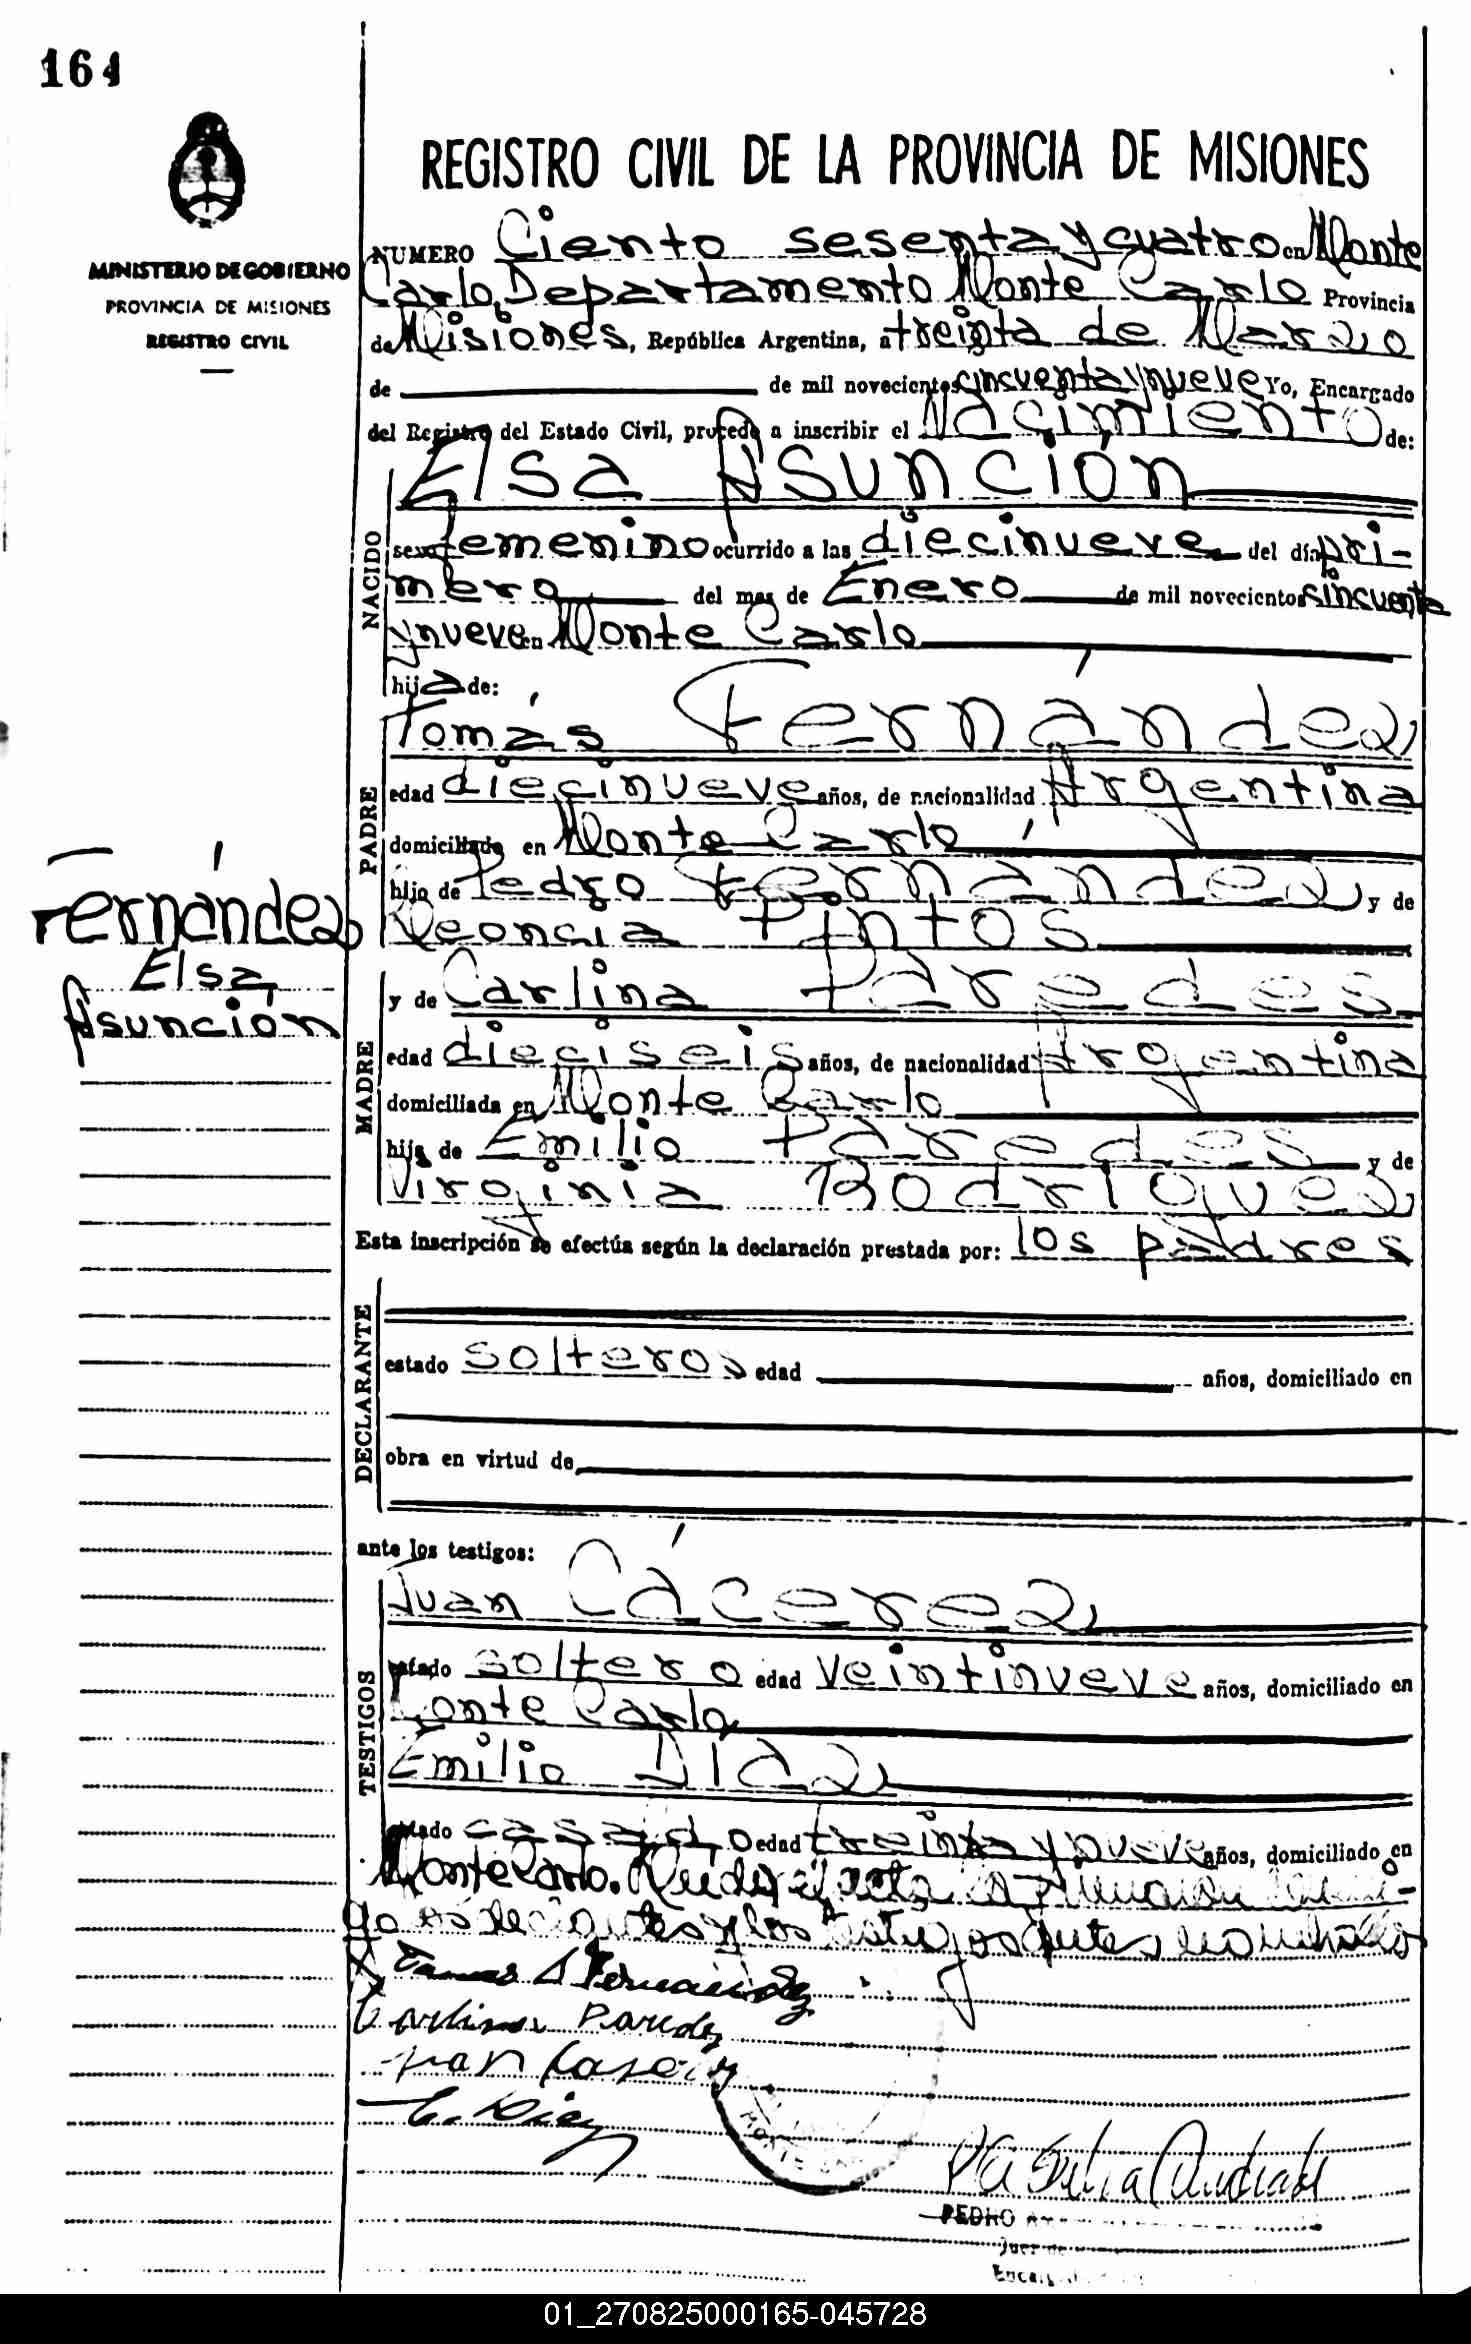 164
MINISTERIO DE GOBIERNO
PROVINCIA DE MISIONES
REGISTRO CIVIL
REGISTRO CIVIL DE LA PROVINCIA DE MISIONES
NUMERO Ciento sesenta y cuatro en Monte
Carlo, Departamento Monte Carlo Provincia
de Misiones, República Argentina, a treinta de Marzo
de de mil novecientos cincuenta y nueve Yo, Encargado
del Registro del Estado Civil, procedo a inscribir el Nacimiento de:
NACIDO
Elsa Asunción
sexo femenino ocurrido a las diecinueve del día pri-
mero del mes de Enero de mil novecientos cincuenta
y nueve en Monte Carlo
hija de:
PADRE
Tomás Fernández
edad diecinueve años, de nacionalidad Argentina
domiciliado en Monte Carlo
hijo de Pedro Fernández y de
Leoncia Pintos
Fernández
Elsa
Asunción
MADRE
y de Carlina Paredes
edad dieciseis años, de nacionalidad Argentina
domiciliada en Monte Carlo
hija de Emilio Paredes y de
Virginia Rodriguez
Esta inscripción se efectúa según la declaración prestada por: los padres
DECLARANTE
estado solteros edad años, domiciliado en
obra en virtud de
ante los testigos:
TESTIGOS
Juan Cácerez
estado soltero edad veintinueve años, domiciliado en
Monte Carlo
Emilio Díaz
estado casado edad treinta y nueve años, domiciliado en
Monte Carlo. Leída el acta la firman conmi-
go los y los testigos antes nombrados
Tomas A Fernandez
Carlina Paredez
Juan
E. Diaz
MONTE CARLO
PEDRO
Juez de
01_270825000165-045728